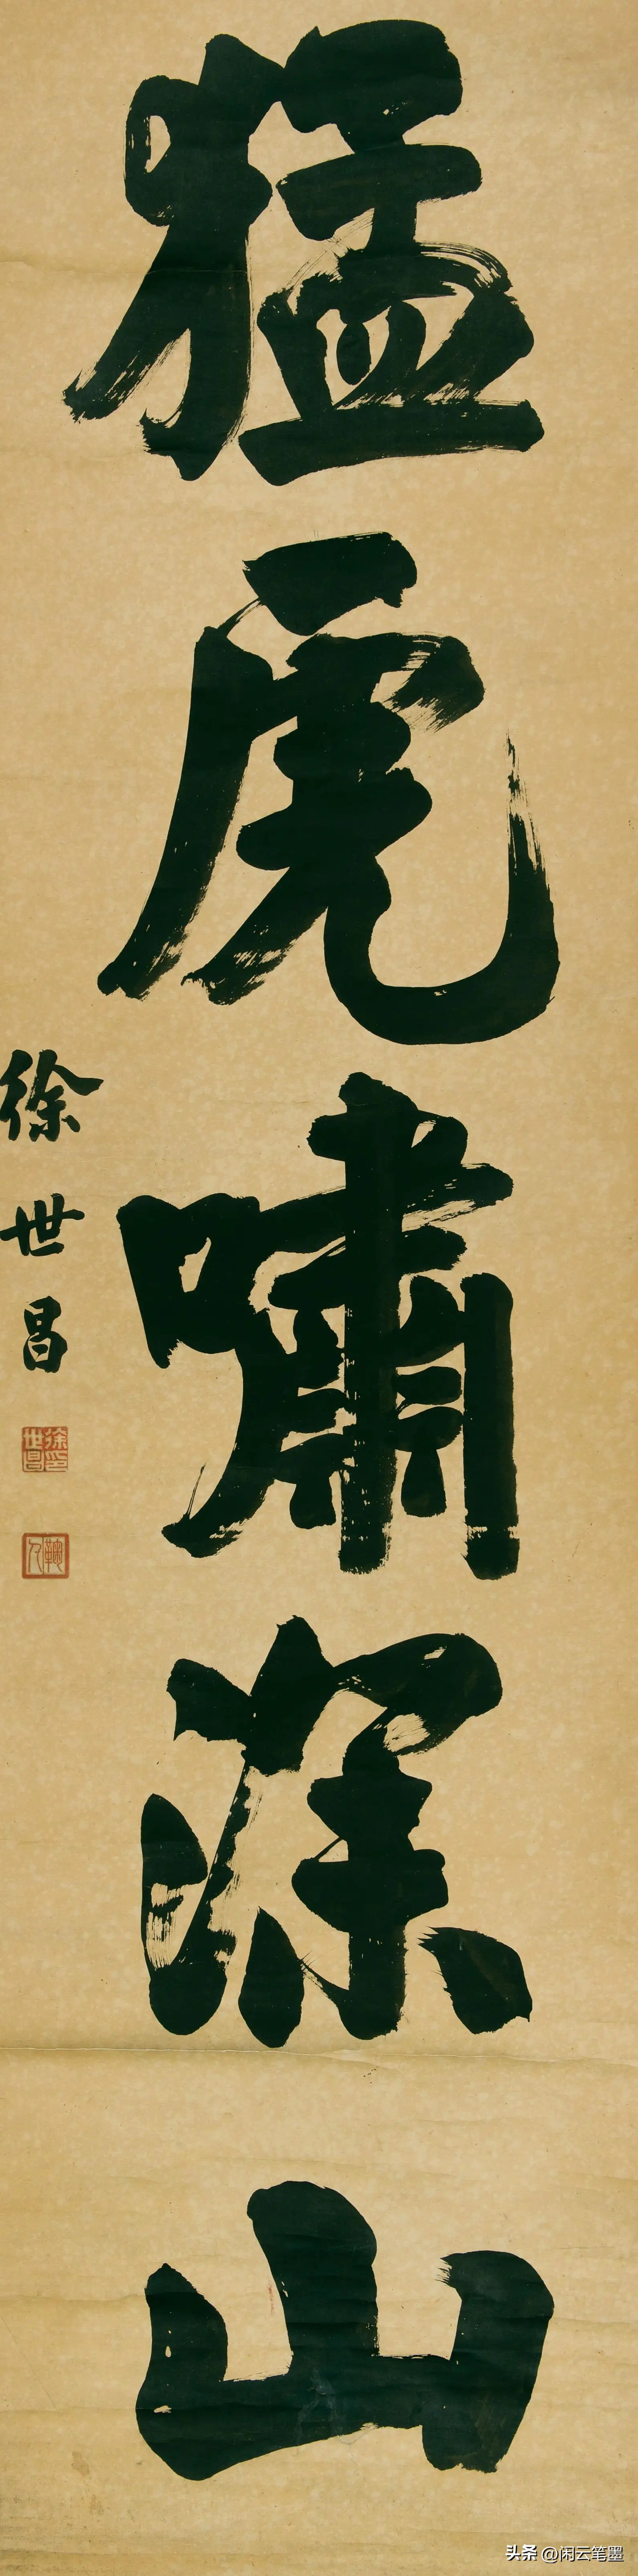 猛虎嘯深山
徐世昌
徐世昌印
鞠人
头条 @闲云笔墨